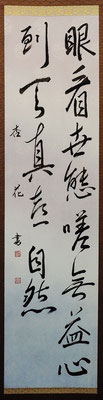 眼看世態嗟無益心
到天真意自然
杏花書